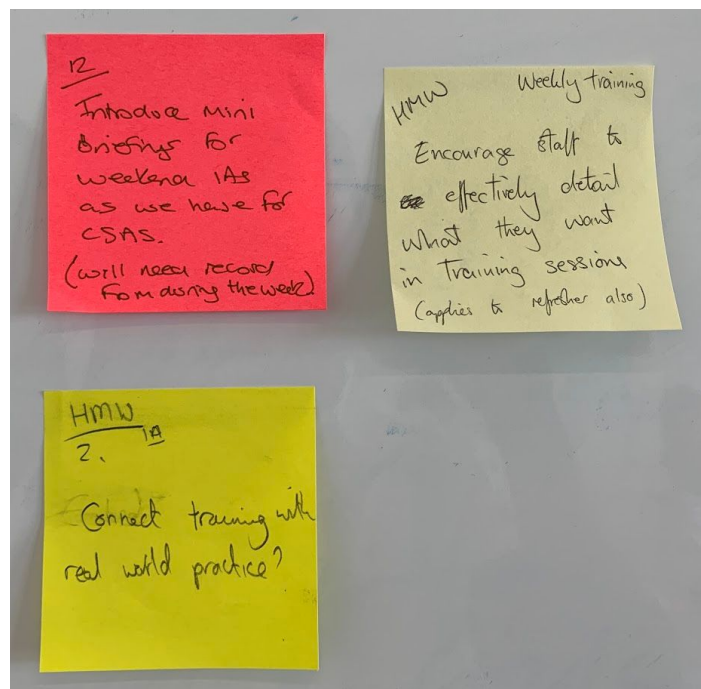 12
Introduce Mini
Briefings for
weekend IAs
as we have for
CSAS.
(will need record
from during the week)
HMW Weekly training
Encourage staff to
effectively detail
what they want
in training sessions
(applies to refresher also)
HMW
2. IA
Connect training with
real world practice?